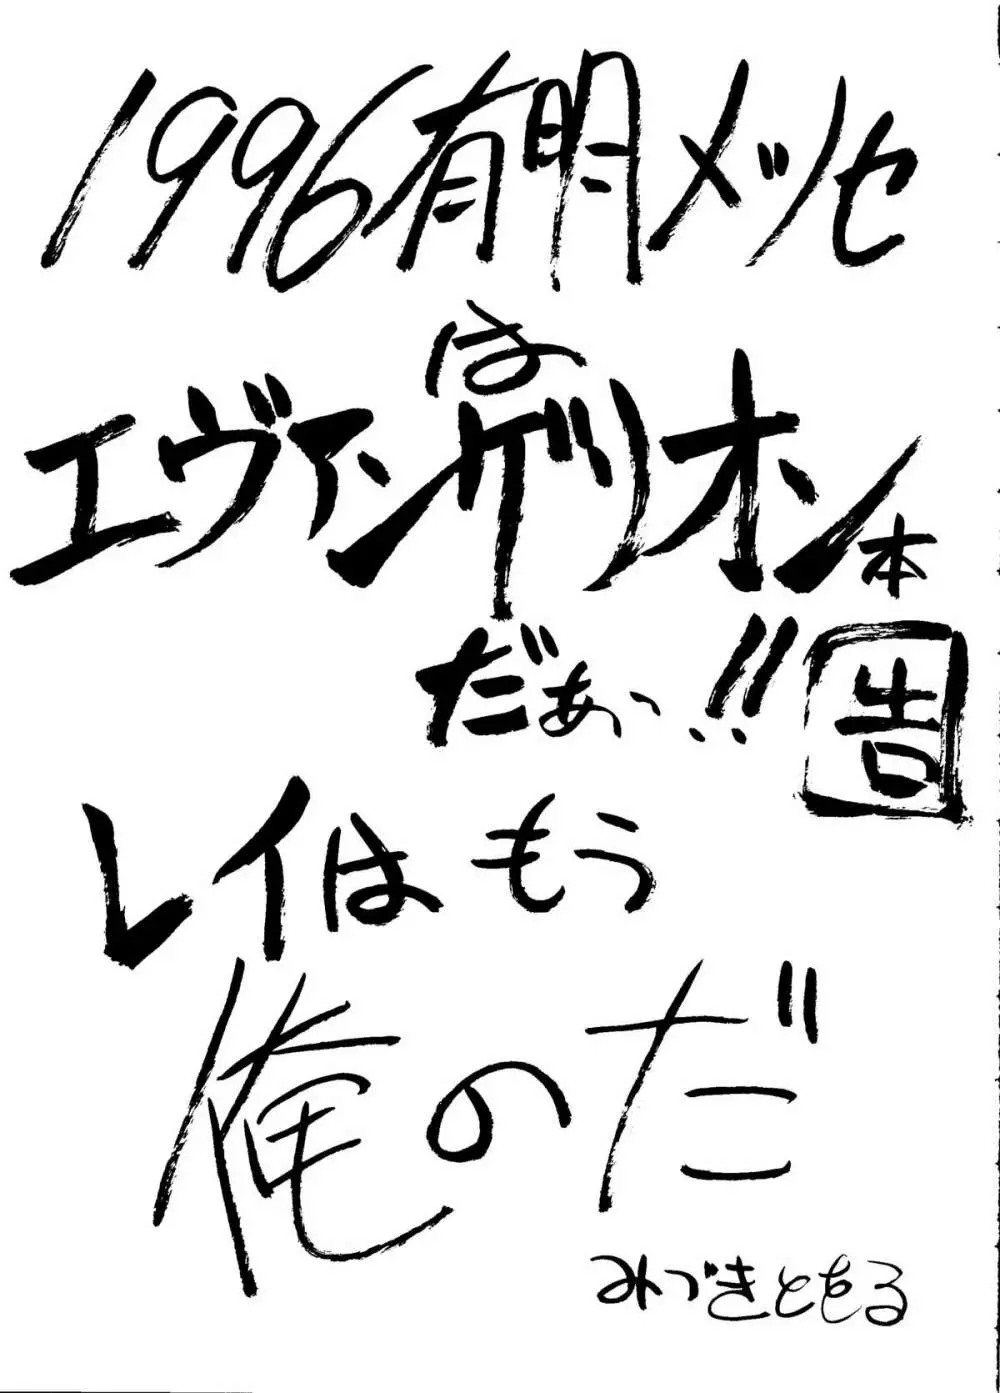 1996有明メッセ
は
エヴァンゲリオン本
だぁっ!!告
レイはもう
俺のだ
みづきともる